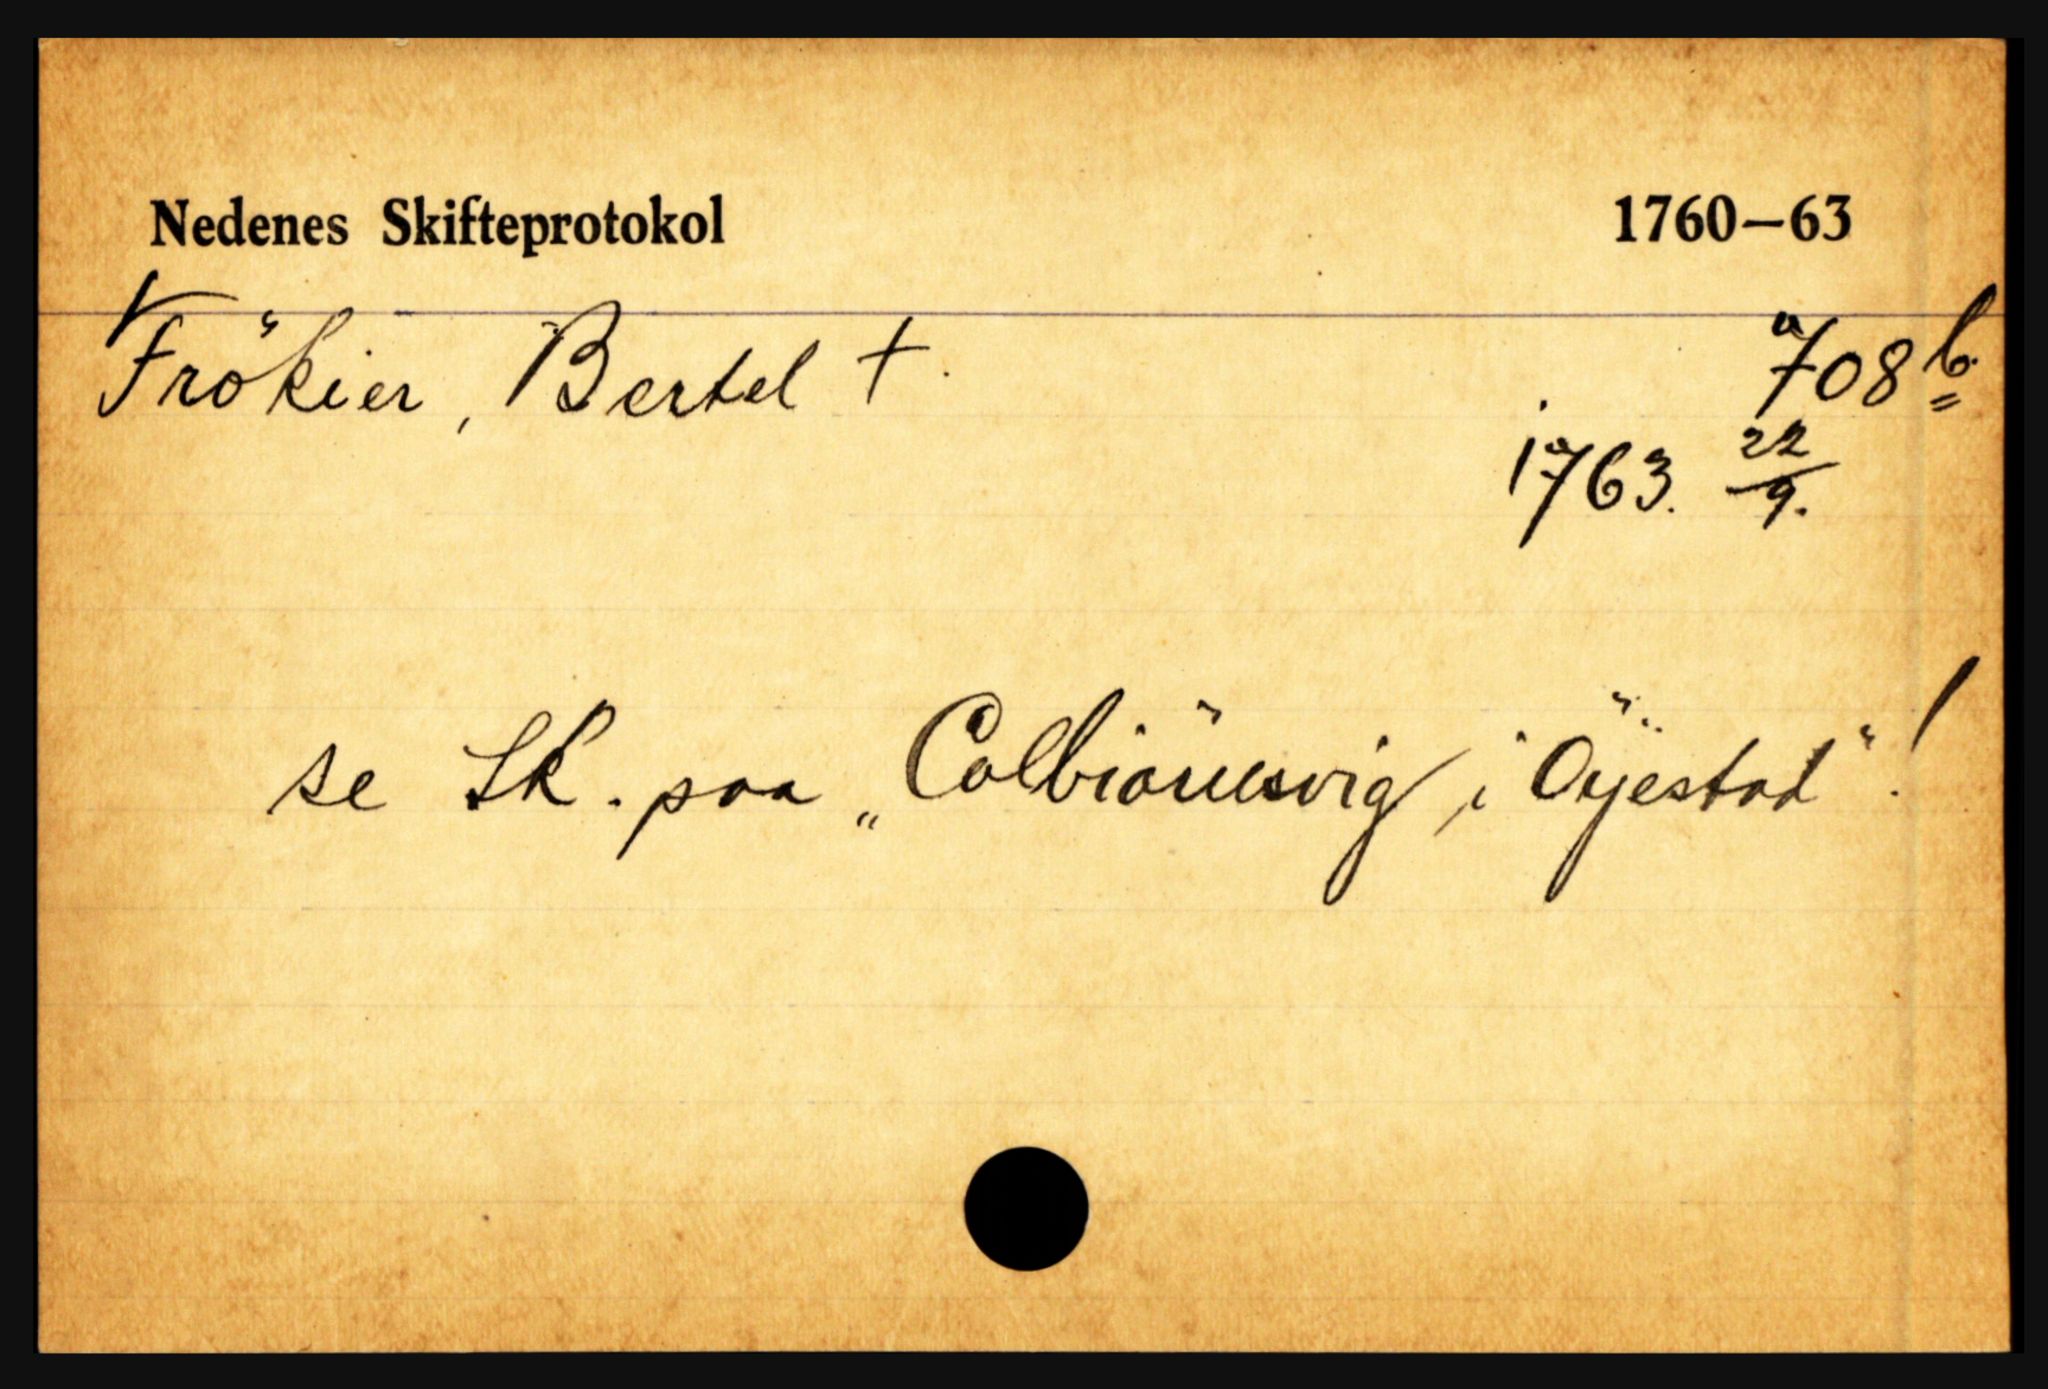 Nedenes Skifteprotokol 1760–63
Frökier, Bertel † 708b
1763. 22/9.
se Sk. paa „Colbiörnsvig, i Öyestad"!